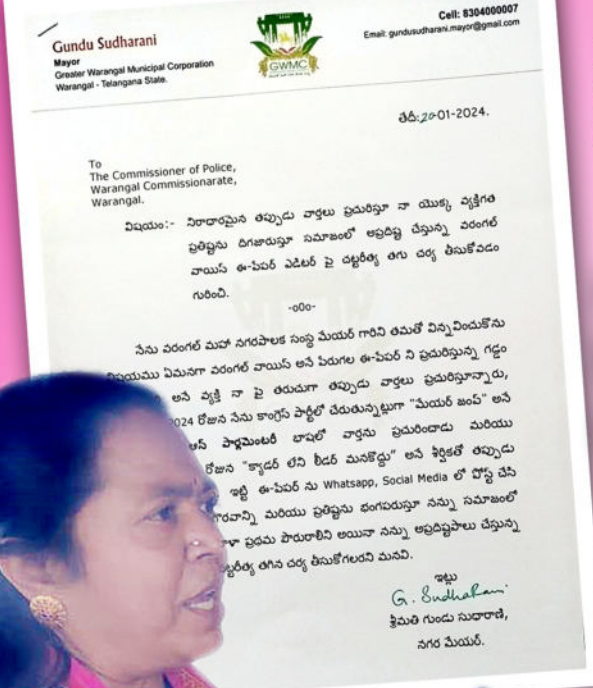 Gundu Sudharani
Mayor
Greater Warangal Municipal Corporation
Warangal - Telangana State.
GWMC
Cell: 8304000007
Email: gundusudharani.mayor@gmail.com
తేదీ:20-01-2024.
To
The Commissioner of Police,
Warangal Commissionarate,
Warangal.
విషయం:- నిరాధారమైన తప్పుడు వార్తలు ప్రచురిస్తూ నా యొక్క వ్యక్తిగత
ప్రతిష్టను దిగజారుస్తూ సమాజంలో అప్రదిష్ట చేస్తున్న వరంగల్
వాయిస్ ఈ-పేపర్ ఎడిటర్ పై చట్టరీత్య తగు చర్య తీసుకోవడం
గురించి.
-oOo-
నేను వరంగల్ మహా నగరపాలక సంస్థ మేయర్ గారిని తమతో విన్నవించుకొను
విషయము ఏమనగా వరంగల్ వాయిస్ అనే పేరుగల ఈ-పేపర్ ని ప్రచురిస్తున్న గడ్డం
అనే వ్యక్తి నా పై తరుచుగా తప్పుడు వార్తలు ప్రచురిస్తూన్నారు,
2024 రోజున నేను కాంగ్రెస్ పార్టీలో చేరుతున్నట్లుగా "మేయర్ జంప్" అనే
పార్లమెంటరీ భాషలో వార్తను ప్రచురించాడు మరియు
రోజున "క్యాడర్ లేని లీడర్ మనకొద్దు" అనే శీర్షికతో తప్పుడు
ఇట్టి ఈ-పేపర్ ను Whatsapp, Social Media లో పోస్ట్ చేసి
మరియు ప్రతిష్టను భంగపరుస్తూ నన్ను సమాజంలో
ప్రథమ పౌరురాలిని అయినా నన్ను అప్రదిష్టపాలు చేస్తున్న
తగిన చర్య తీసుకోగలరని మనవి.
ఇట్లు
G. Sudha Rani
శ్రీమతి గుండు సుధారాణి,
నగర మేయర్.